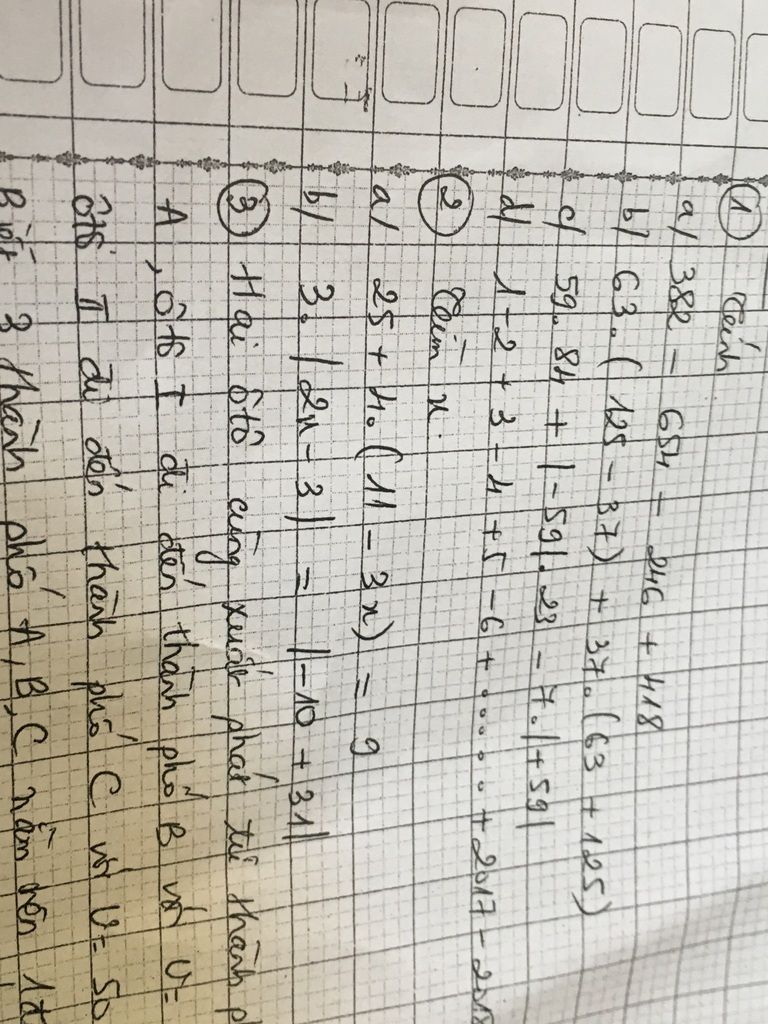 ① Tính
a/ 382 - 654 - 246 + 418
b/ 63.(125 - 37) + 37.(63 + 125)
c/ 59.84 + |-59|.23 - 7.|+59|
d/ 1-2+3-4+5-6+......+2017-2018
② Tìm x.
a/ 25 + 4.(11 - 3x) = 9
b/ 3.|2x - 3| = |-10 + 31|
③ Hai ôtô cùng xuất phát từ thành
A, ôtô I đi đến thành phố B với V=
ôtô II đi đến thành phố C với V= 50
Biết 3 thành phố A, B, C nằm trên 1